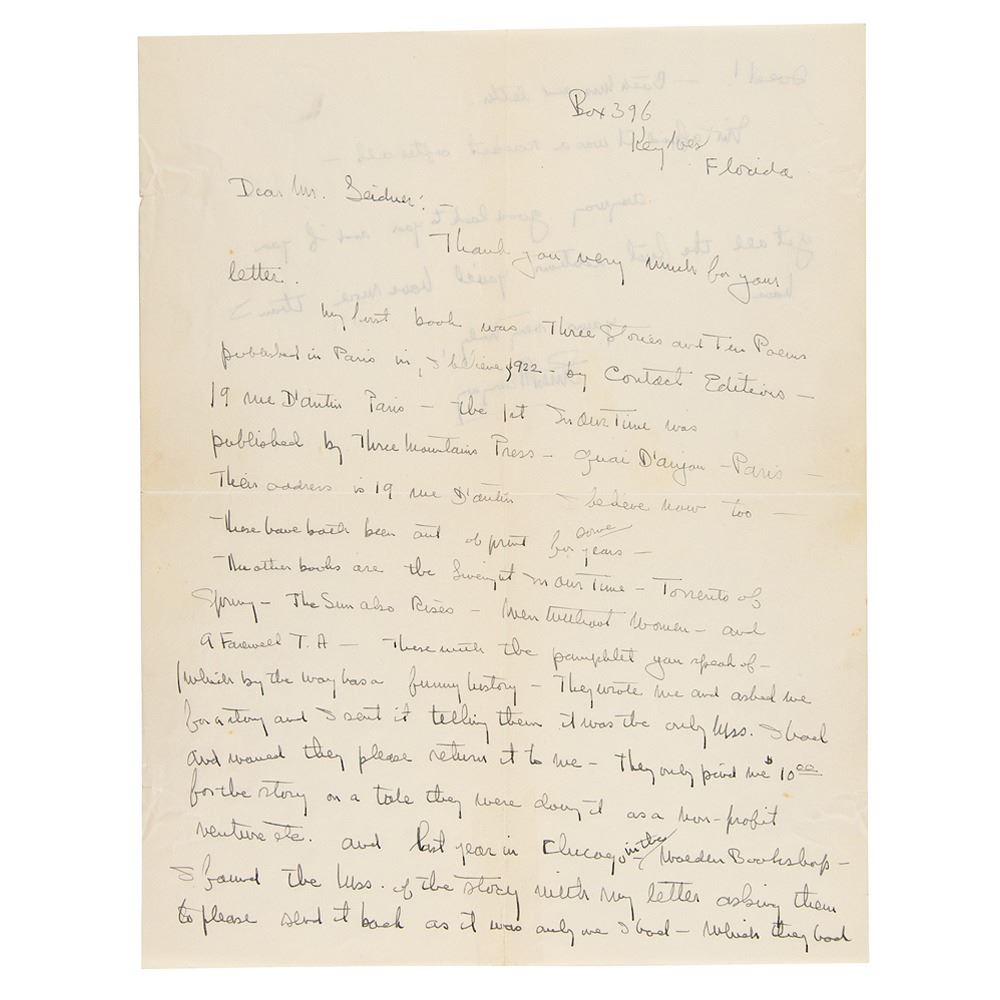 Box 396
Key West
Florida
Dear Mr. Seidner: —
Thank you very much for your
letter.
My first book was Three Stories and Ten Poems
published in Paris in, I believe, 1922 - by Contact Editions —
19 rue D'antin Paris — the 1st In Our Time was
published by Three Mountains Press — Quai D'anjou — Paris —
Their address is 19 rue D'antin I believe now too —
These have both been out of print for some years —
The other books are the Liveright In Our Time — Torrents of
Spring — The Sun also Rises — Men Without Women — and
A Farewell T. A — These with the pamphlet you speak of —
(which by the way has a funny history — They wrote me and asked me
for a story and I sent it telling them it was the only Mss. I had
and would they please return it to me — They only paid me $10.00
for the story on a tale they were doing it as a non-profit
venture etc. and last year in Chicago in the Walden Bookshop —
I found the Mss. of the story with my letter asking them
to please send it back as it was only one I had — which they had